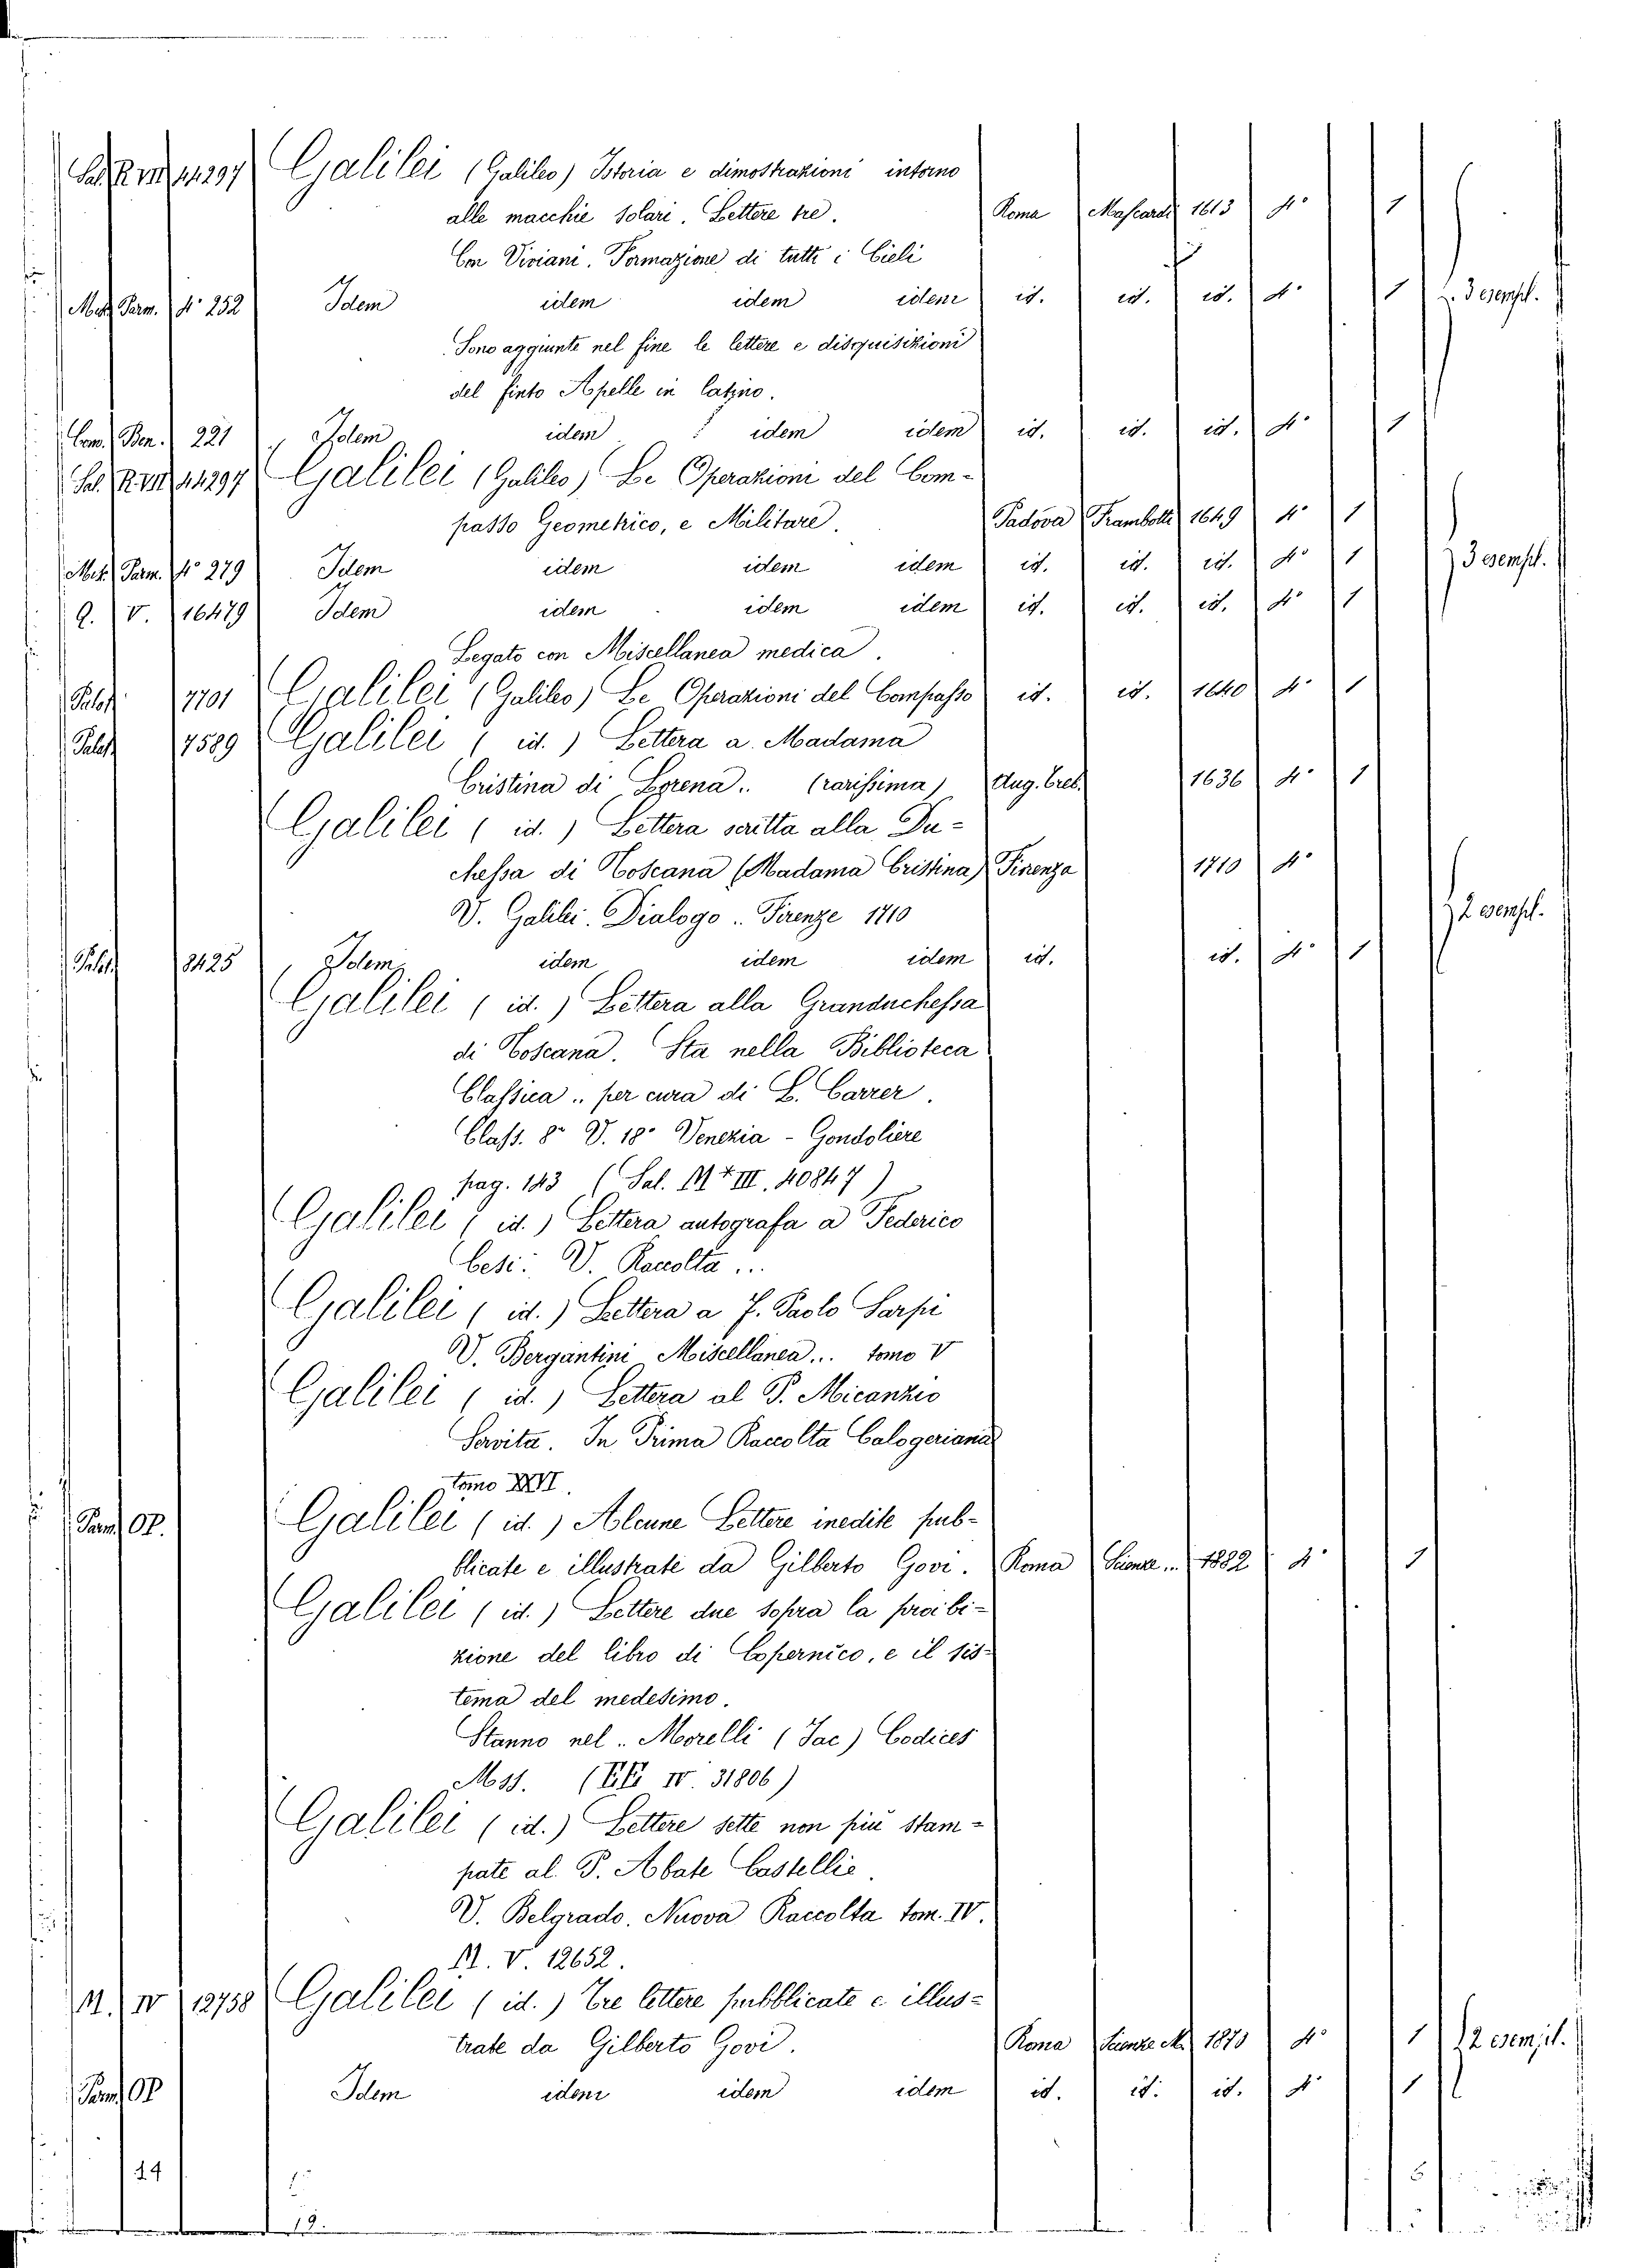 Sal. R. VII 44297 Galilei (Galileo) Istoria e dimostrazioni intorno
alle macchie solari. Lettere tre. Roma Mascardi 1613 4° 1
Con Viviani. Formazione di tutti i Cieli
Met. Parm. N° 252 Idem idem idem idem id. id. id. 4° 1 3 esempl.
Sono aggiunte nel fine le lettere e disquisizioni
del finto Apelle in latino.
Com. Ben. 221 Idem idem idem idem id. id. id. 4° 1
Sal. R. VII 44297 Galilei (Galileo) Le Operazioni del Com-
passo Geometrico, e Militare. Padova Frambotti 1649 4° 1
Met. Parm. N° 279 Idem idem idem idem id. id. id. 4° 1 3 esempl.
Q. V. 16479 Idem idem idem idem id. id. id. 4° 1
Legato con Miscellanea medica.
Palaf. 7701 Galilei (Galileo) Le Operazioni del Compasso id. id. 1640 4° 1
Palaf. 7589 Galilei (id.) Lettera a Madama
Cristina di Lorena.. (rarissima) Aug. Treb. 1636 4° 1
Galilei (id.) Lettera scritta alla Du-
chessa di Toscana (Madama Cristina) Firenza 1710 4°
V. Galilei. Dialogo.. Firenze 1710 2 esempl.
Palaf. 8425 Idem idem idem idem id. id. 4° 1
Galilei (id.) Lettera alla Granduchessa
di Toscana. Sta nella Biblioteca
Classica.. per cura di L. Carrer.
Class. 8° V. 18° Venezia - Gondoliere
pag. 143 (Sal. M+III. 40847)
Galilei (id.) Lettera autografa a Federico
Cesi: V. Raccolta...
Galilei (id.) Lettera a F. Paolo Sarpi
V. Bergantini Miscellanea... tomo V
Galilei (id.) Lettera al P. Micanzio
Servita. In Prima Raccolta Calogeriana
tomo XXVI.
Parm. OP. Galilei (id.) Alcune Lettere inedite pub-
blicate e illustrate da Gilberto Govi. Roma Scienze... 1882 4° 1
Galilei (id.) Lettere due sopra la proibi-
zione del libro di Copernico, e il sis-
tema del medesimo.
Stanno nel.. Morelli (Jac) Codices
Mss. (EE IV 31806)
Galilei (id.) Lettere sette non più stam-
pate al P. Abate Castellio.
V. Belgrado. Nuova Raccolta tom. IV.
M. V. 12652.
M. IV 12758 Galilei (id.) Tre lettere pubblicate e illus-
trate da Gilberto Govi. Roma Scienze M. 1870 4° 1 2 esempl.
Parm. OP Idem idem idem idem id. id. id. 4° 1
14